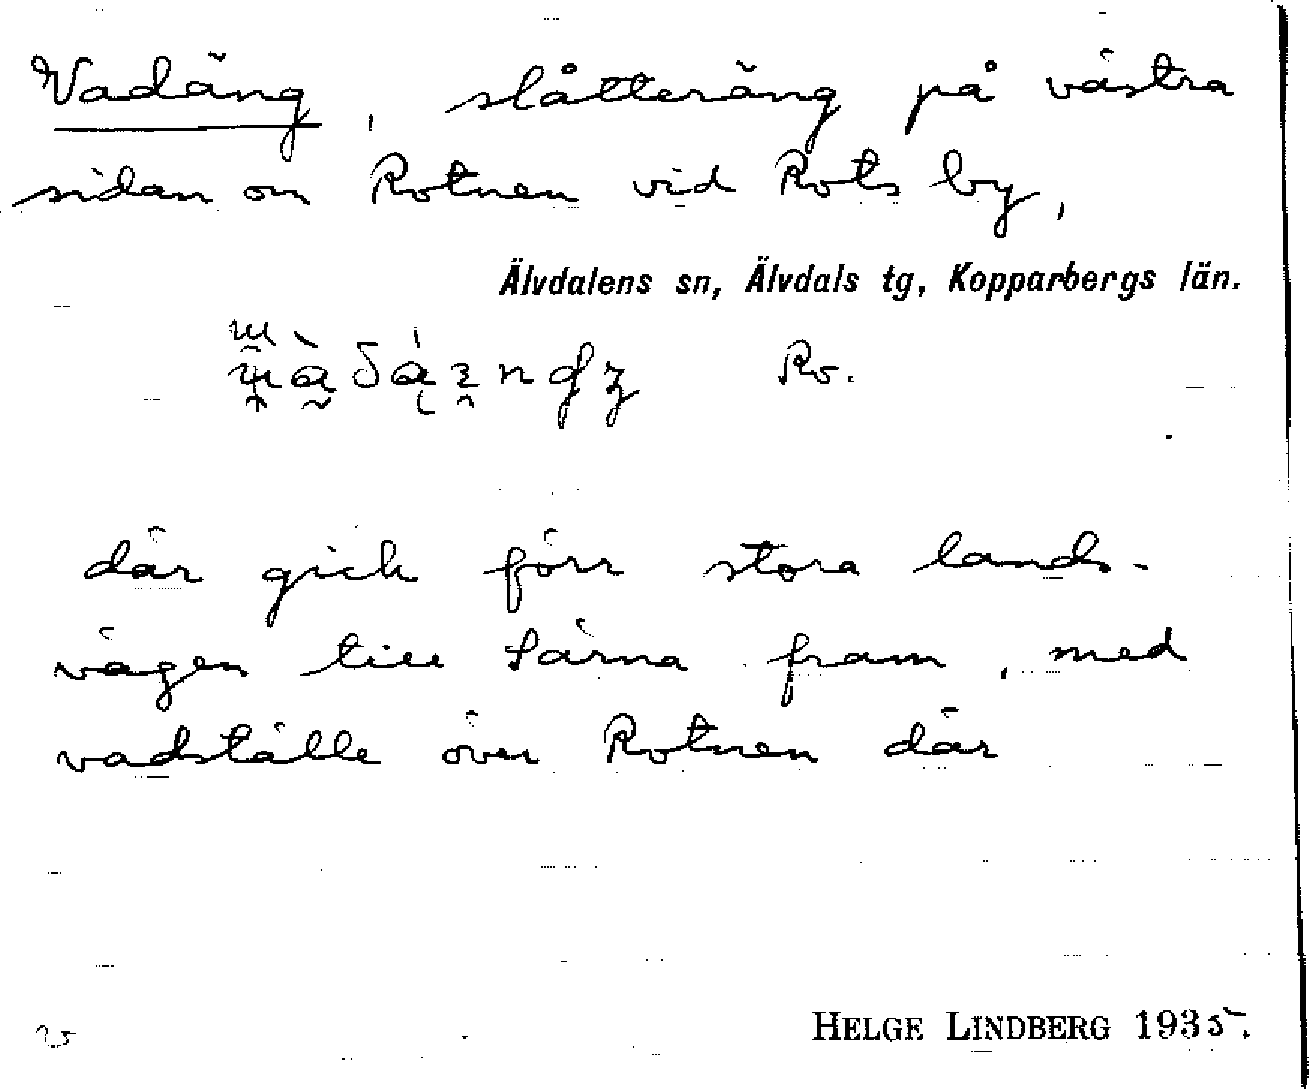 Vadäng, slåtteräng på västra
sidan om Rotnen vid Rots by,
Älvdalens sn, Älvdals tg, Kopparbergs län.
Ro.
där gick förr stora lands-
vägen till Särna fram, med
vadställe över Rotnen där
25
HELGE LINDBERG 1935.